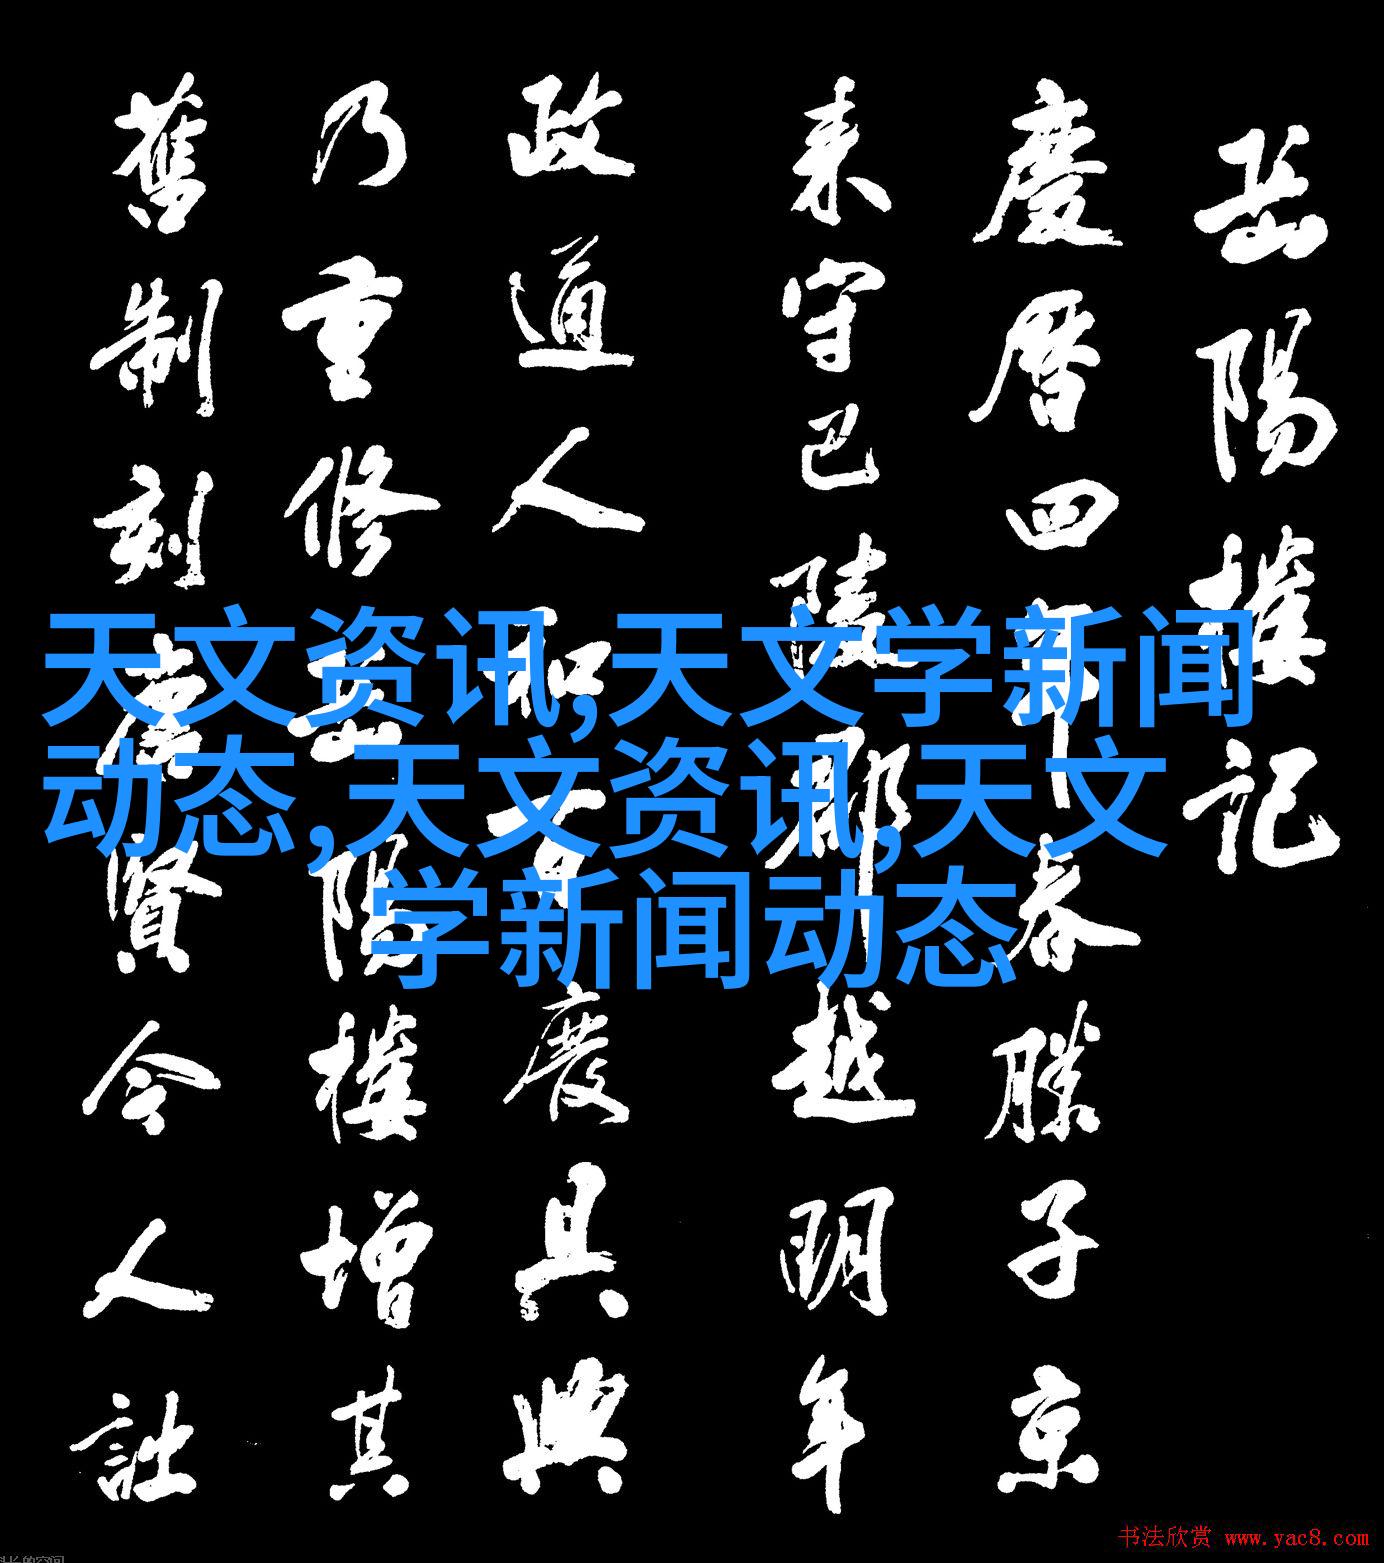 岳陽樓記
慶曆四年春滕子京
来守巴陵郡越明年
政通人和百廢具興
乃重修岳陽樓增其
舊制刻唐賢今人詩
天文资讯,天文学新闻
动态,天文资讯,天文
学新闻动态
书法欣赏 www.yac8.com